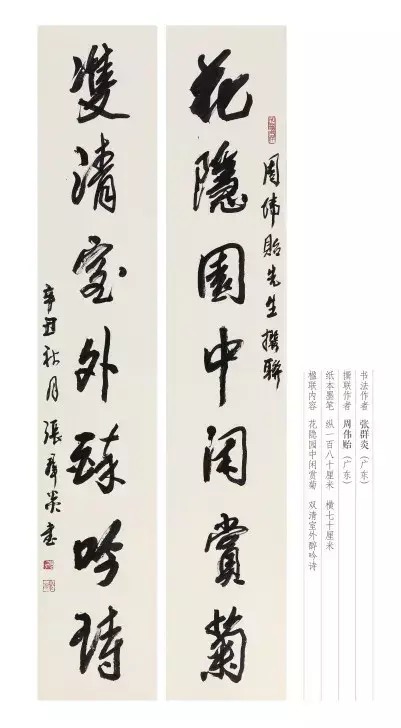 书法作者 张群炎（广东）
撰联作者 周伟贻（广东）
纸本墨笔 纵一百八十厘米 横七十厘米
楹联内容 花隐园中闲赏菊 双清室外醉吟诗
周偉貽先生撰聯
花隱園中闲賞菊
雙清室外醉吟詩
辛丑秋月 張群炎書